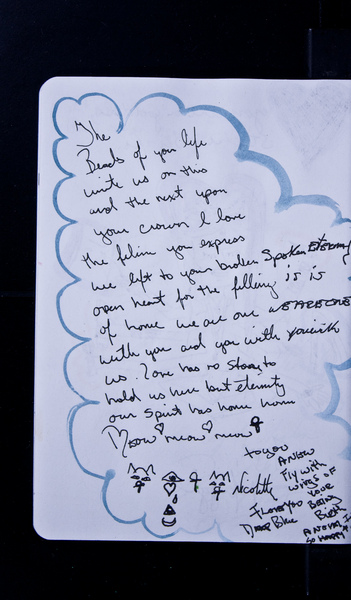 The
Beads of you life
unite us on this
and the next upon
your crown I love
the felim you express
we left to your broken Spoken Eternity
open heart for the filling is is
of home we are one
with you and you with
us. Love has no story to
hold us here but eternity
our spirit has home home
Meow meow meow
to you
Anew
Fly with
wings of
your
Being
Nicolette
I love you
Deep Blue
Birth
so happy